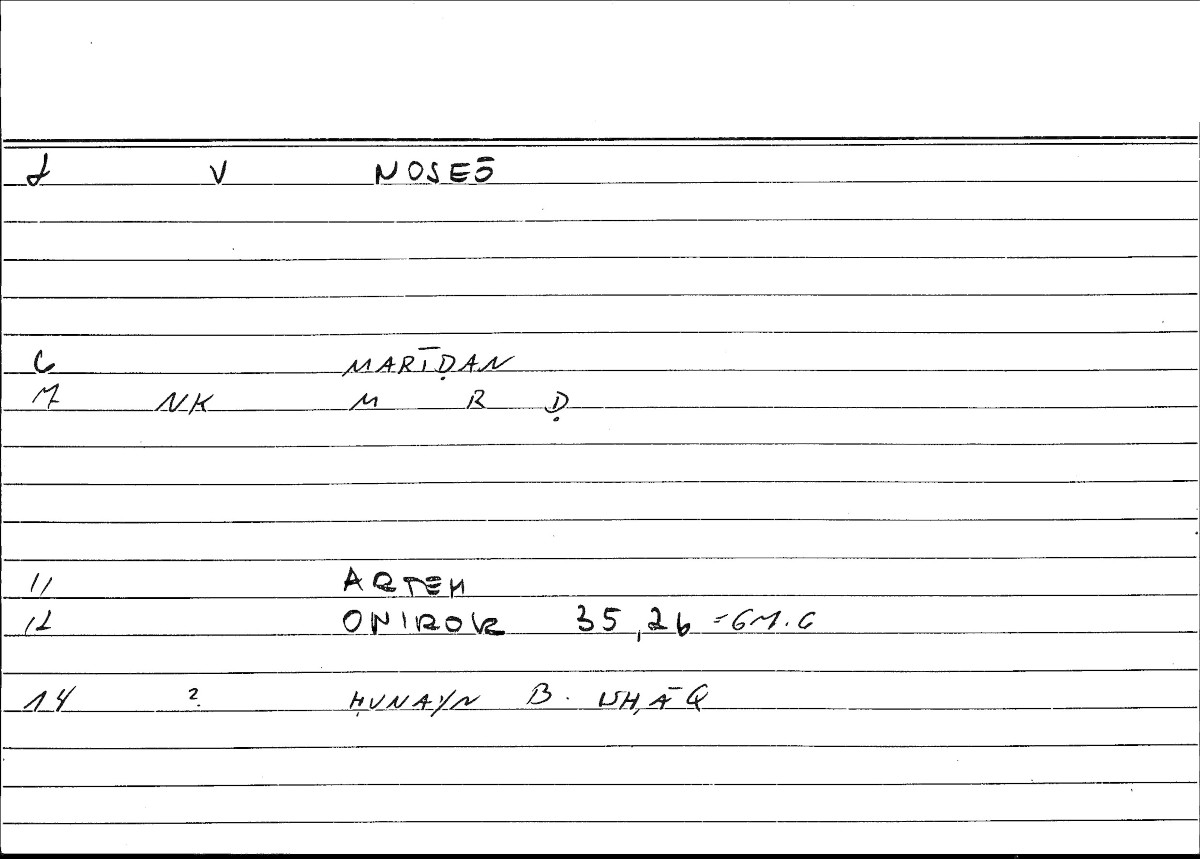 2 V NOSEŌ
6 MARĪḌAN
7 NK M R Ḍ
11 ARTEM
12 ONIROK 35,26 = 67.6
14 ? ḤUNAYN B. ISḤĀQ